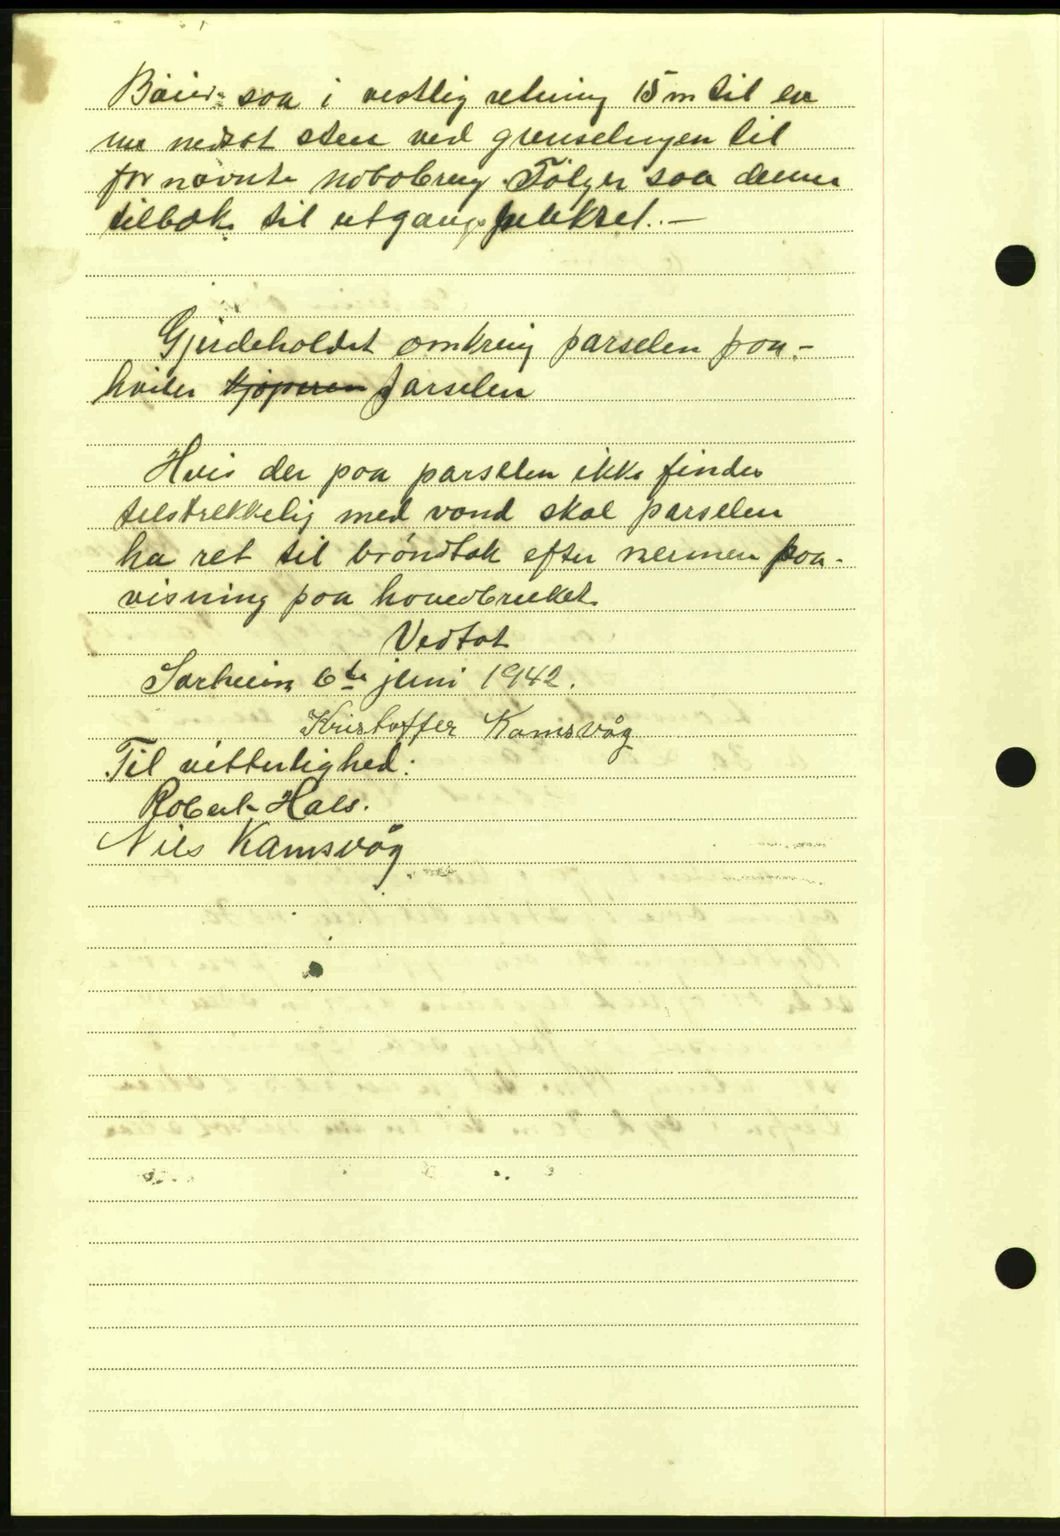 Bøier saa i vestlig retning 15 m til en
nu nedsat sten ved grenselinjen til
fornævnte nabobruk. Følger saa denne
tilbake til utgangspunktet. —
Gjerdeholdet omkring parselen paa-
hviler kjøperen parselen
Hvis der paa parselen ikke findes
tilstrekkelig med vand skal parselen
ha ret til brøndtak efter nermere paa-
visning paa hovedbruket.
Vedtat
Sørheim 6te juni 1942.
Kristoffer Kamsvåg
Til vitterlighed:
Robert Hals.
Nils Kamsvåg